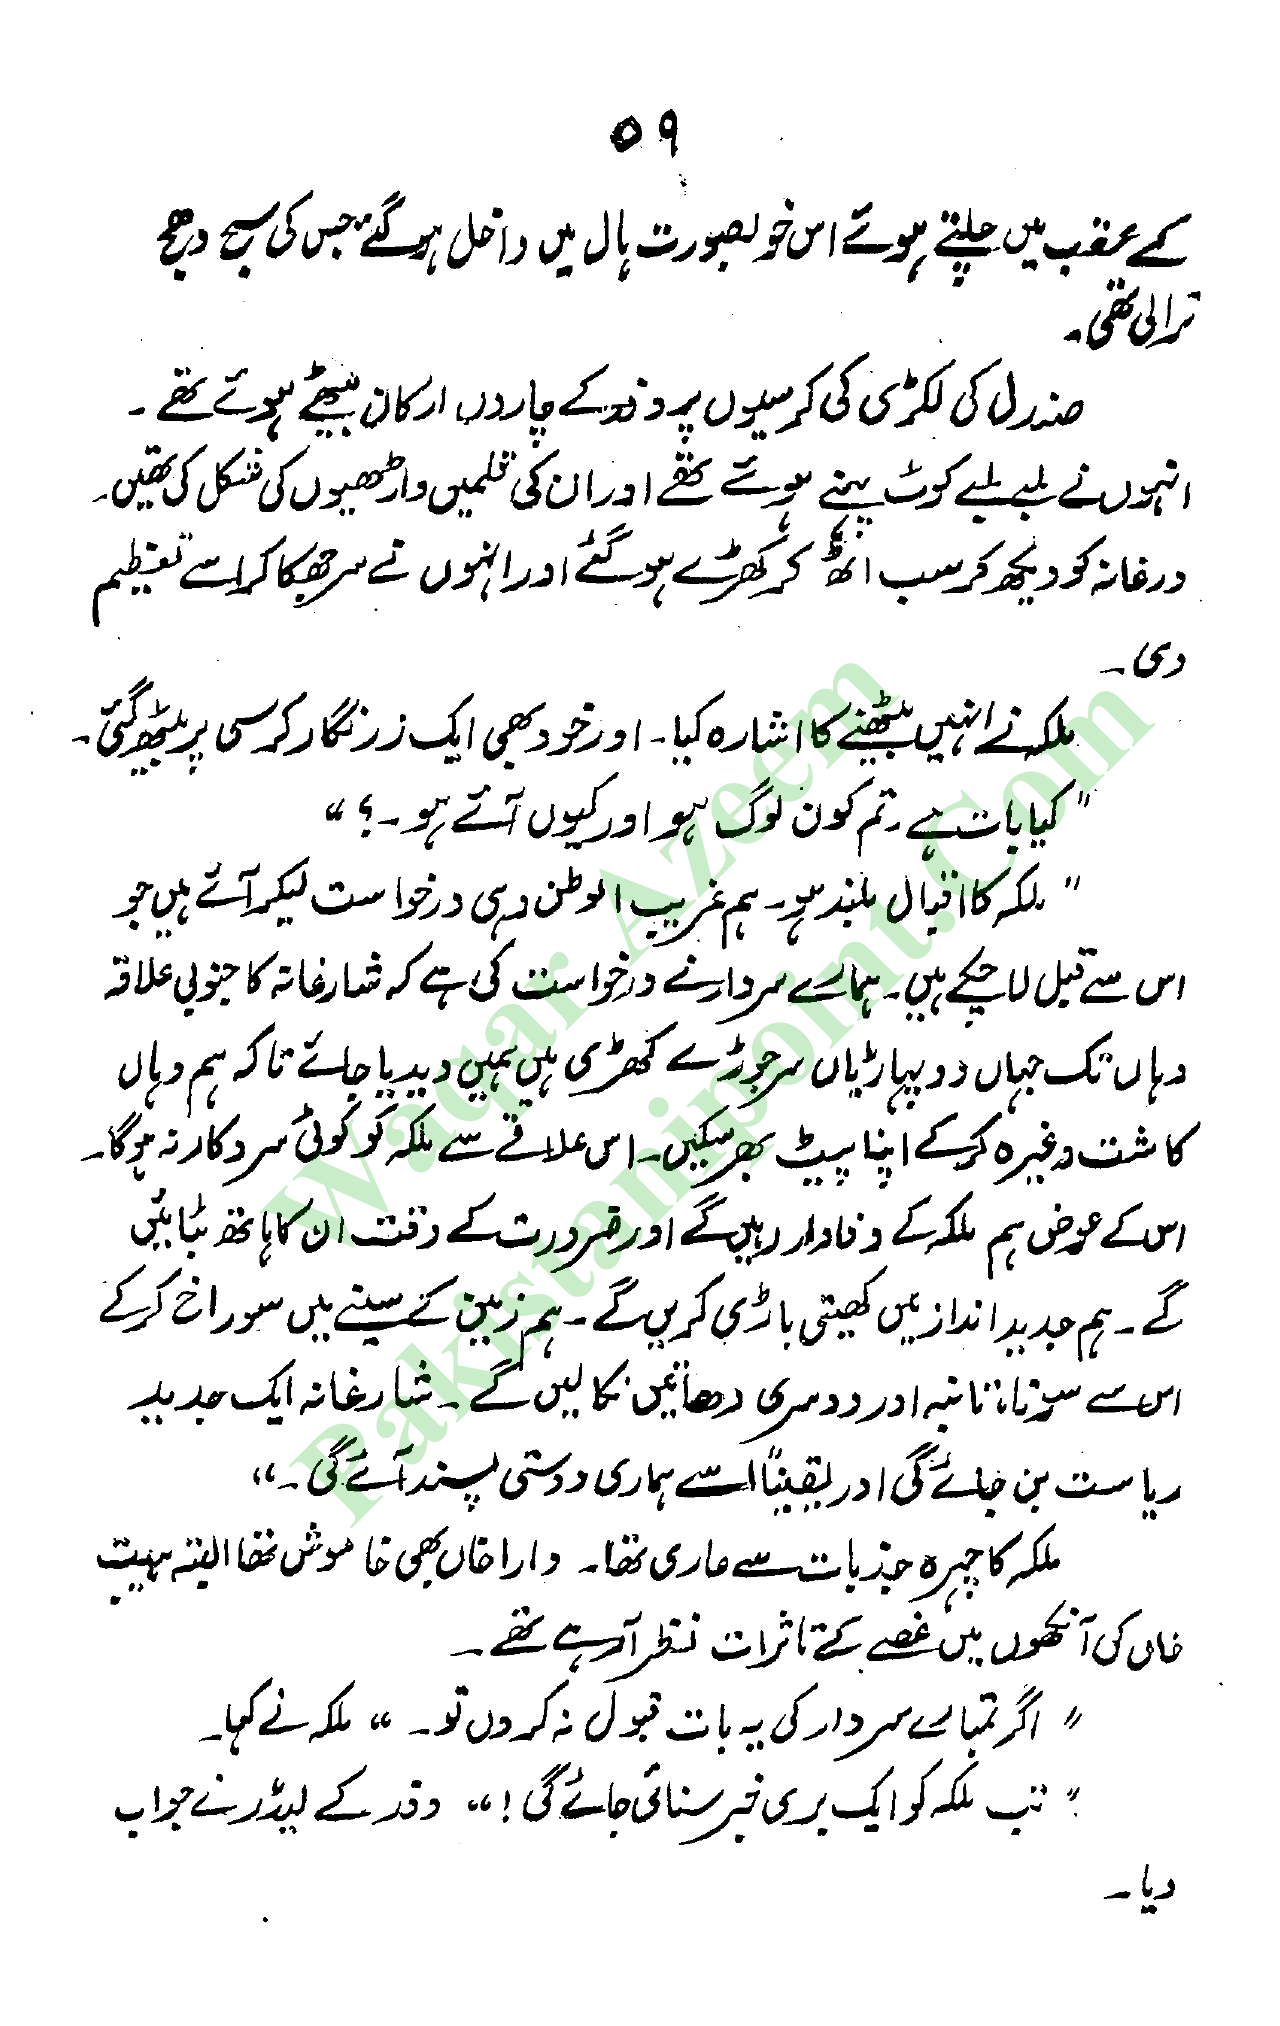 ۵۹
کے عقب میں چلتے ہوئے اس خوبصورت ہال میں داخل ہو گئے جس کی سج دھج
نرالی تھی۔
صندل کی لکڑی کی کرسیوں پر وفد کے چاروں ارکان بیٹھے ہوئے تھے۔
انہوں نے لمبے لمبے کوٹ پہنے ہوئے تھے اور ان کی قلمیں داڑھیوں کی شکل کی تھیں۔
درغانہ کو دیکھ کر سب اٹھ کر کھڑے ہو گئے اور انہوں نے سر جھکا کر اسے تعظیم
دی۔
ملکہ نے انہیں بیٹھنے کا اشارہ کیا۔ اور خود بھی ایک زرنگار کرسی پر بیٹھ گئی۔
"کیا بات ہے۔ تم کون لوگ ہو اور کیوں آئے ہو۔؟"
"ملکہ کا اقبال بلند ہو۔ ہم غریب الوطن وہی درخواست لیکر آئے ہیں جو
اس سے قبل لا چکے ہیں۔ ہمارے سردار نے درخواست کی ہے کہ شارغانہ کا جنوبی علاقہ
وہاں تک جہاں دو پہاڑیاں سر جوڑے کھڑی ہیں ہمیں دیدیا جائے تاکہ ہم وہاں
کاشت وغیرہ کر کے اپنا پیٹ بھر سکیں۔ اس علاقے سے ملکہ کو کوئی سروکار نہ ہوگا۔
اس کے عوض ہم ملکہ کے وفادار رہیں گے اور ضرورت کے وقت ان کا ہاتھ بٹائیں
گے۔ ہم جدید انداز میں کھیتی باڑی کریں گے۔ ہم زمین کے سینے میں سوراخ کر کے
اس سے سونا، تانبہ اور دوسری دھاتیں نکالیں گے۔ شارغانہ ایک جدید
ریاست بن جائے گی اور یقیناً اسے ہماری دوستی پسند آئے گی۔"
ملکہ کا چہرہ جذبات سے عاری تھا۔ دارا خاں بھی خاموش تھا البتہ ہیبت
خاں کی آنکھوں میں غصے کے تاثرات نظر آ رہے تھے۔
"اگر تمہارے سردار کی یہ بات قبول نہ کروں تو۔" ملکہ نے کہا۔
"تب ملکہ کو ایک بری خبر سنائی جائے گی!" وفد کے لیڈر نے جواب
دیا۔
Waqar Azeem
Pakistanipoint.Com